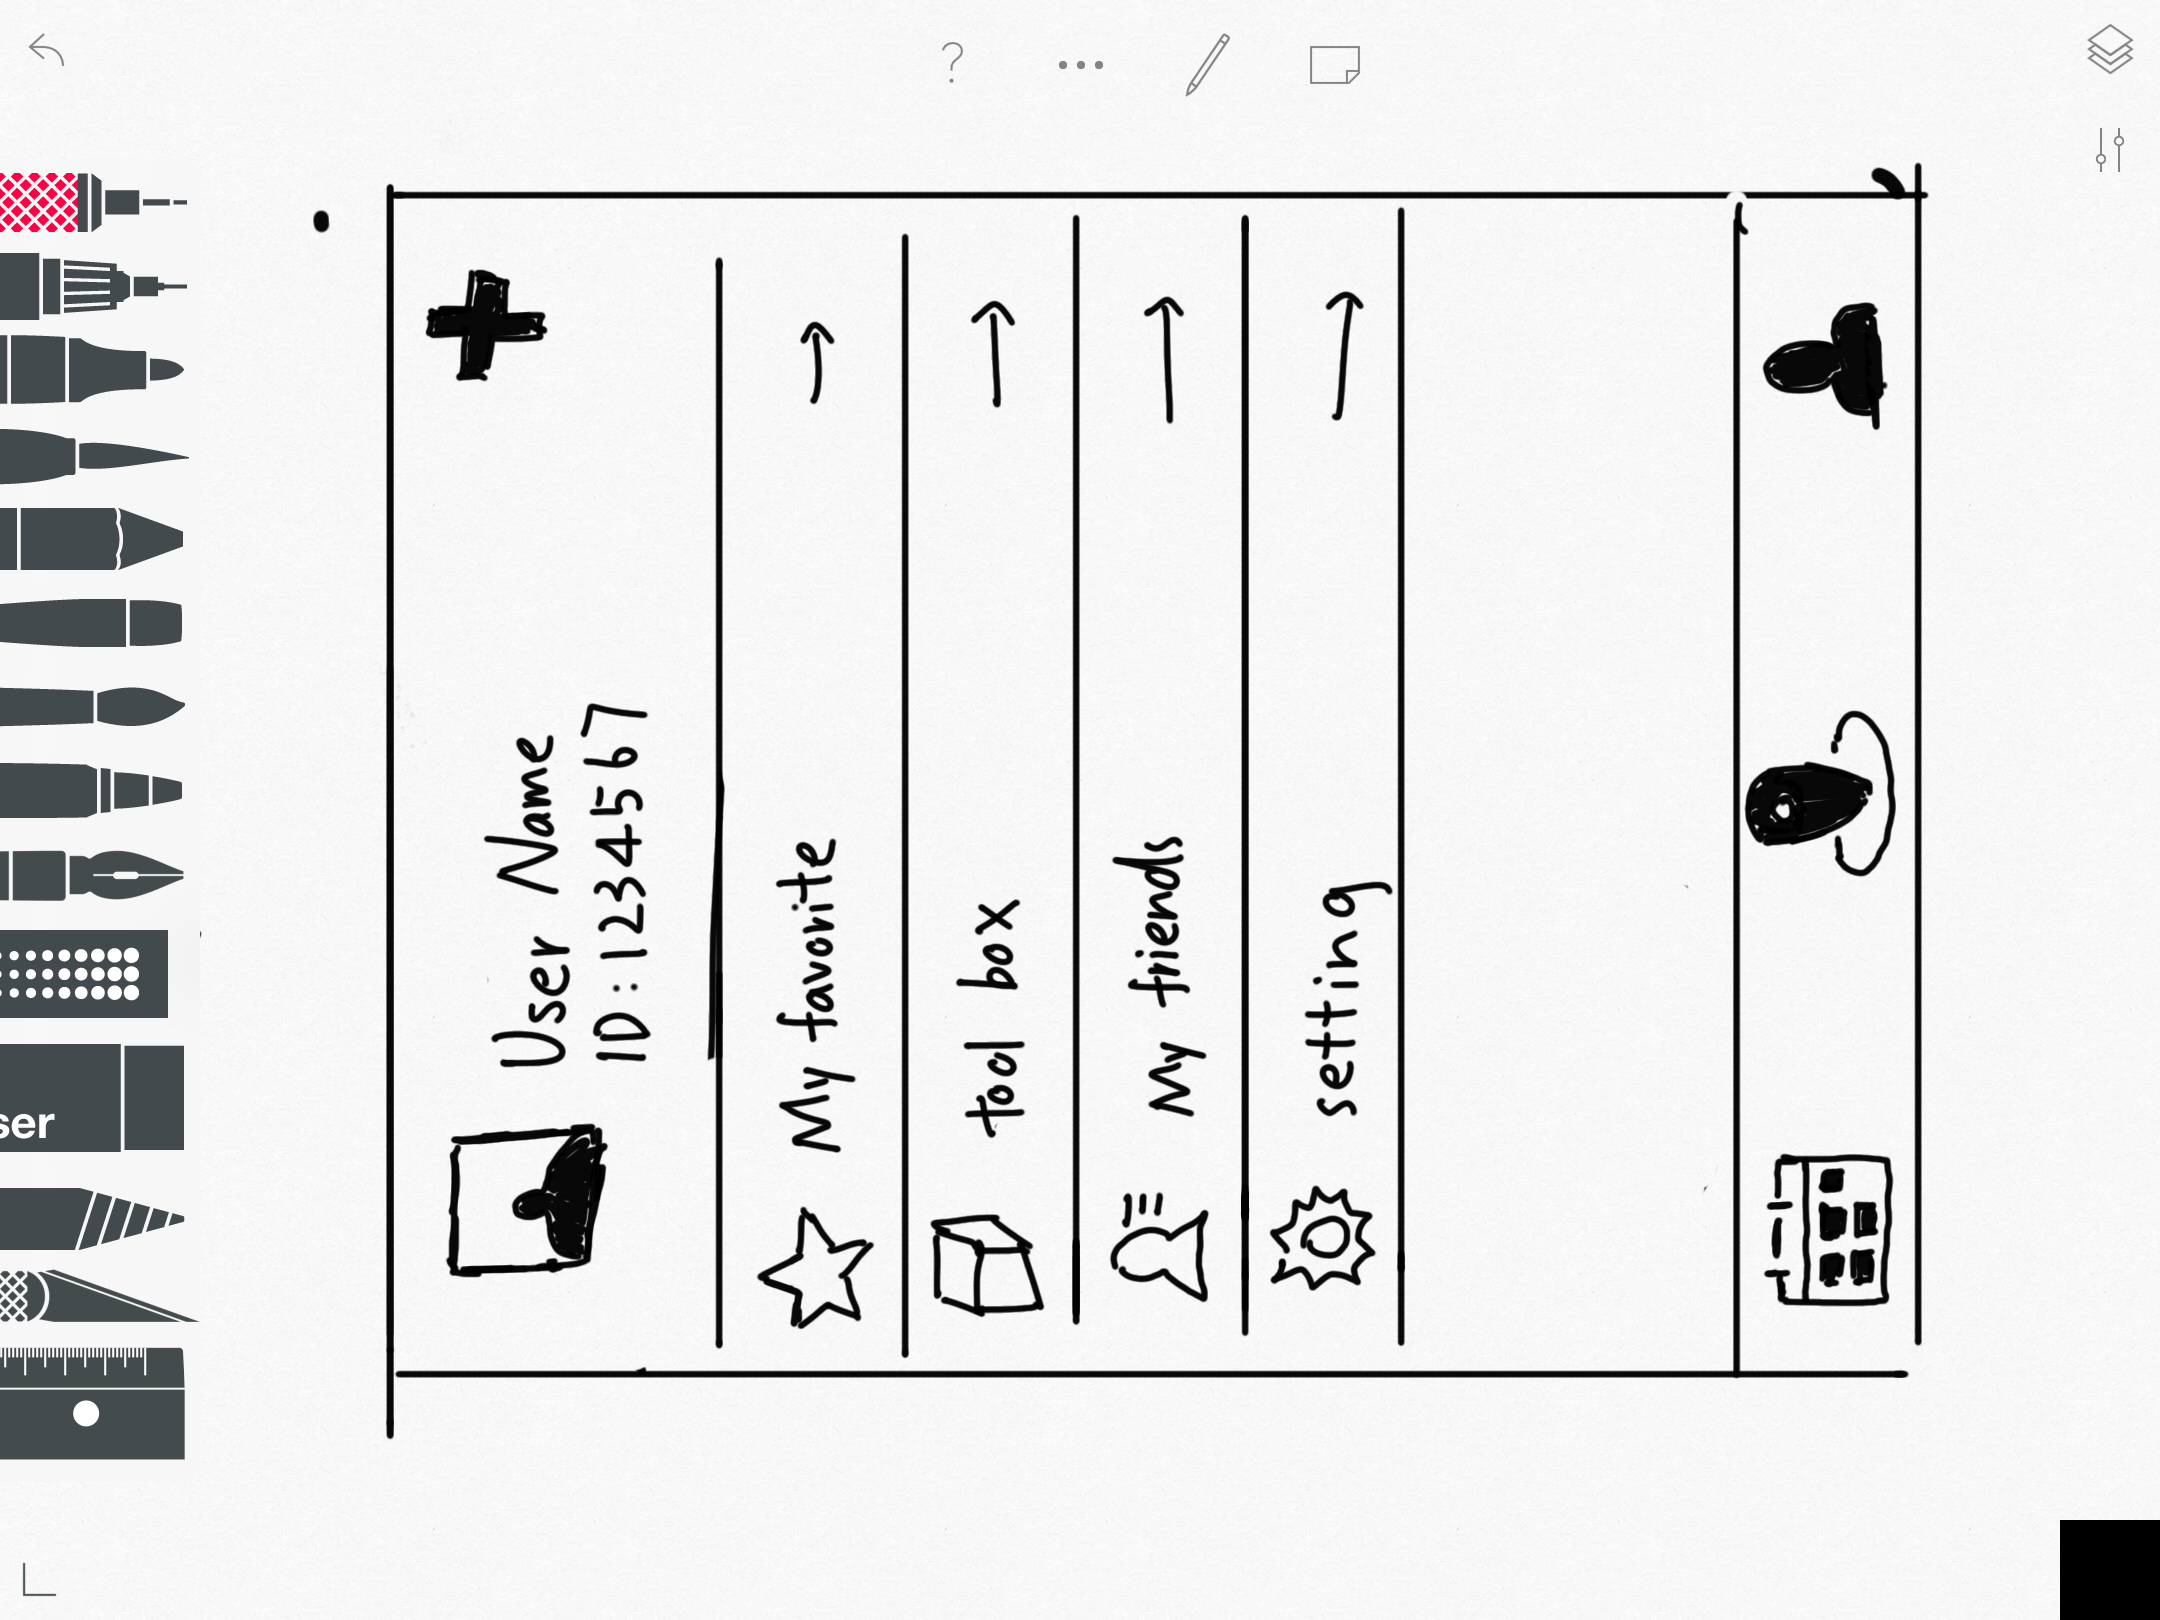 User Name
ID:1234567
My favorite
tool box
My friends
setting
ser